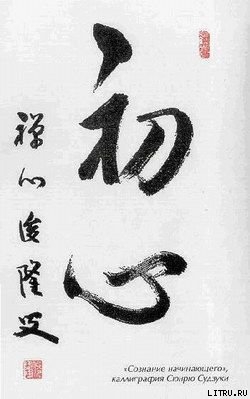 初心
禪心俊隆
«Сознание начинающего»,
каллиграфия Сюнрю Судзуки
LITRU.RU